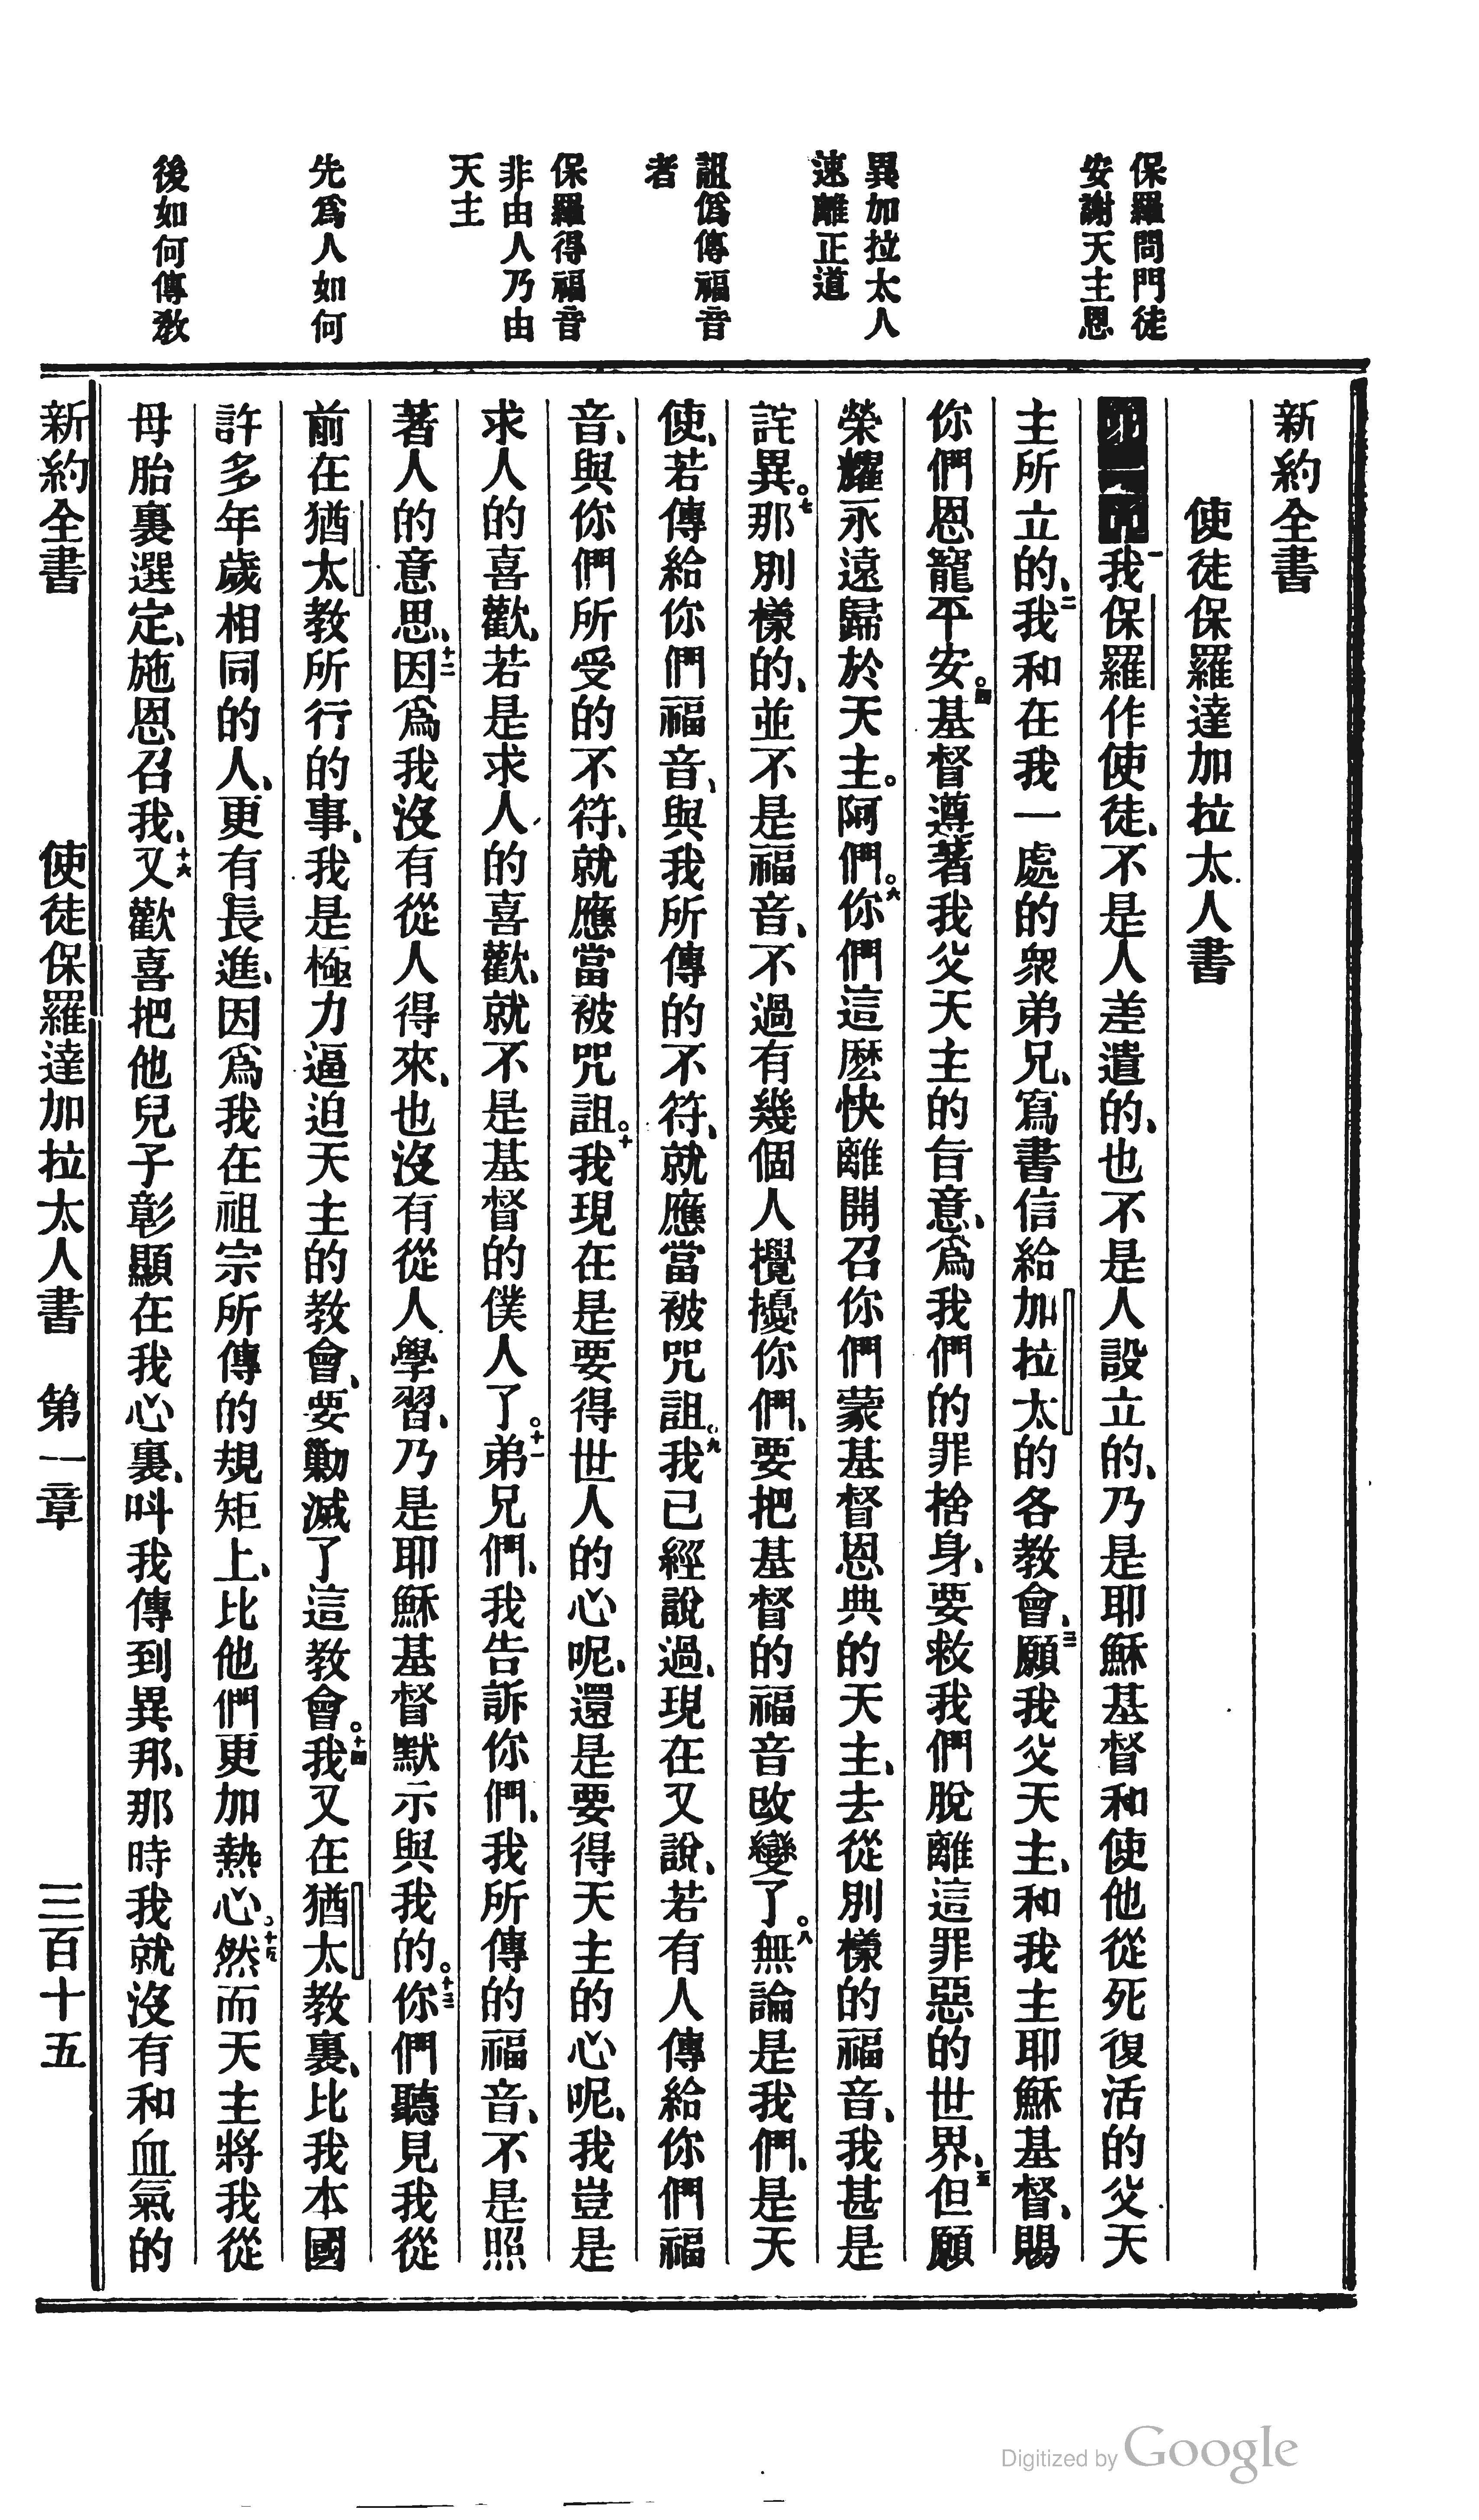 保羅問門徒
安謝天主恩
異加拉太人
速離正道
詛僞傳福音
者
保羅得福音
非由人乃由
天主
先爲人如何
後如何傳教
新約全書
使徒保羅達加拉太人書
一我保羅作使徒、不是人差遣的、也不是人設立的、乃是耶穌基督和使他從死復活的父天
主所立的、二我和在我一處的衆弟兄、寫書信給加拉太的各教會、三願我父天主、和我主耶穌基督、賜
你們恩寵平安。四基督遵著我父天主的旨意、爲我們的罪捨身、要救我們脫離這罪惡的世界、五但願
榮耀永遠歸於天主。阿們。六你們這麽快離開召你們蒙基督恩典的天主、去從別樣的福音、我甚是
詫異。七那別樣的、並不是福音、不過有幾個人攪擾你們、要把基督的福音改變了。八無論是我們、是天
使、若傳給你們福音、與我所傳的不符、就應當被咒詛。九我已經說過、現在又說、若有人傳給你們福
音、與你們所受的不符、就應當被咒詛。十我現在是要得世人的心呢、還是要得天主的心呢、我豈是
求人的喜歡、若是求人的喜歡、就不是基督的僕人了。十一弟兄們、我告訴你們、我所傳的福音、不是照
著人的意思、十二因爲我沒有從人得來、也沒有從人學習、乃是耶穌基督默示與我的。十三你們聽見我從
前在猶太教所行的事、我是極力逼迫天主的教會、要勦滅了這教會。十四我又在猶太教裏、比我本國
許多年歲相同的人、更有長進、因爲我在祖宗所傳的規矩上、比他們更加熱心。十五然而天主將我從
母胎裏選定、施恩召我、十六又歡喜把他兒子彰顯在我心裏、呌我傳到異邦、那時我就沒有和血氣的
新約全書 使徒保羅達加拉太人書 第一章 三百十五
Digitized by Google